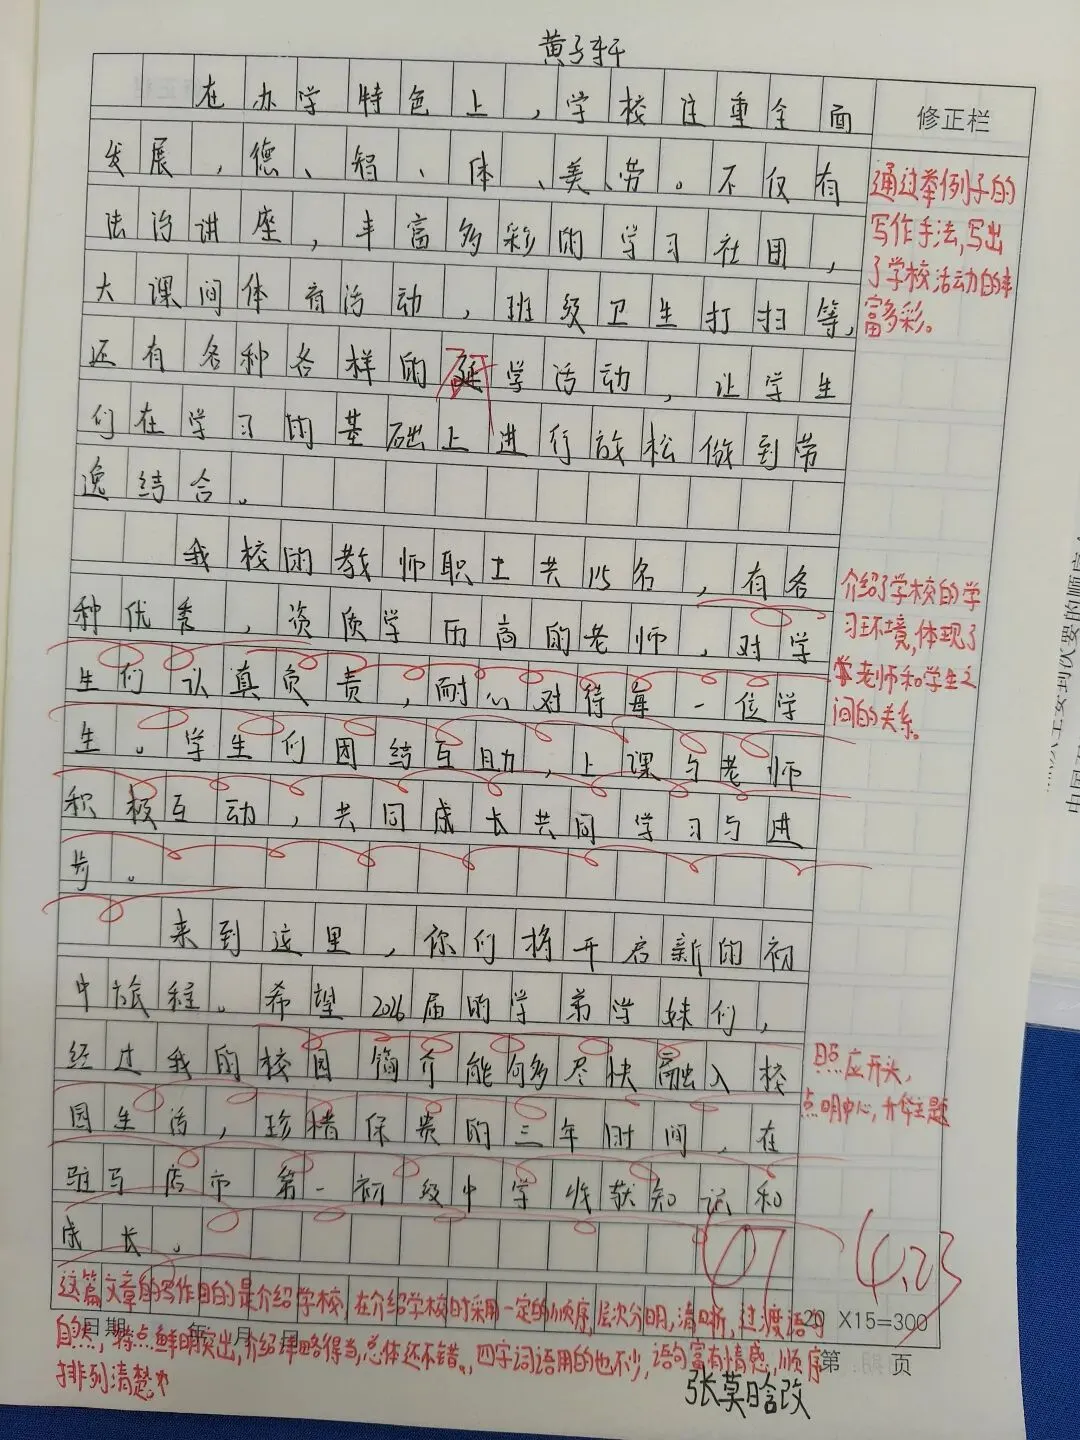 黄子轩
在办学特色上，学校注重全面
修正栏
发展，德、智、体、美、劳。不仅有
法治讲座，丰富多彩的学习社团，
大课间体育活动，班级卫生打扫等，
还有各种各样的研学活动，让学生
们在学习的基础上进行放松做到劳
逸结合。
通过举例子的
写作手法，写出
了学校活动的丰
富多彩。
我校的教师职工共115名，有各
种优秀，资质学历高的老师，对学
生们认真负责，耐心对待每一位学
生。学生们团结互助，上课与老师
积极互动，共同成长共同学习与进
步。
介绍了学校的学
习环境，体现了
老师和学生之
间的关系。
来到这里，你们将开启新的初
中旅程。希望2026届的学弟学妹们，
经过我的校园简介能够多尽快融入校
园生活，珍惜保贵的三年时间，在
驻马店市第一初级中学收获知识和
成长。
照应开头，
点明中心，升华主题
4.23
这篇文章的写作目的是介绍学校，在介绍学校时采用一定的顺序，层次分明，清晰，过渡语句
自然，特点鲜明突出，介绍详略得当，总体还不错。四字词语用的也不少，语句富有情感，顺序
排列清楚。
日期 年 月 日
20 X15=300
第 页
张莫晗改